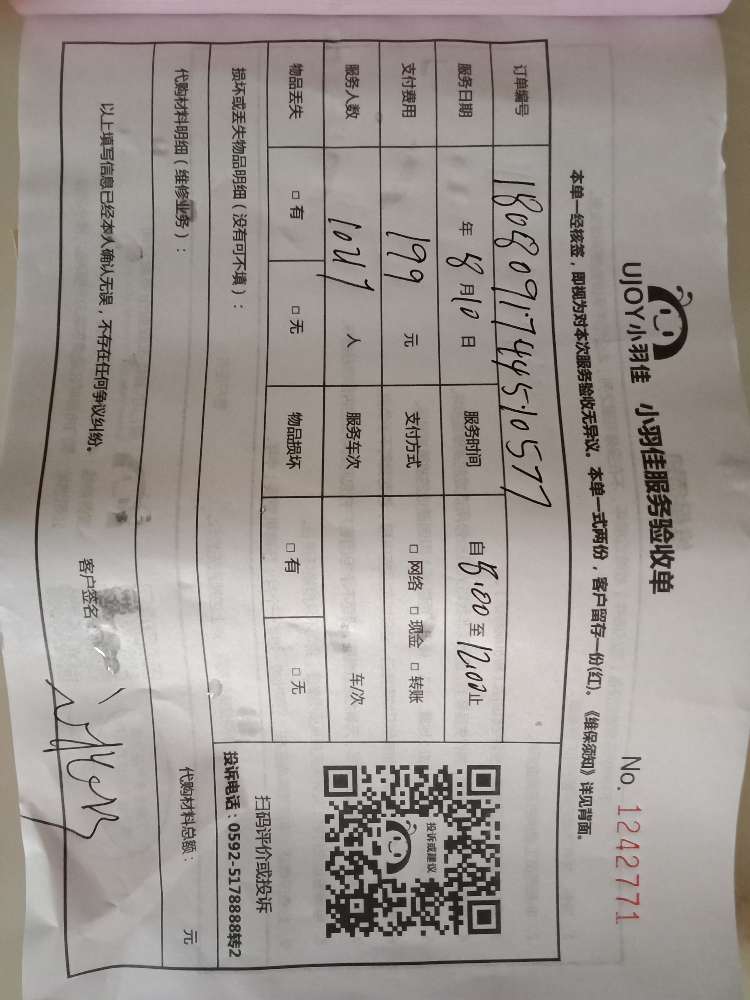 UJOY小羽佳 小羽佳服务验收单 No. 1242771
本单一经核签，即视为对本次服务验收无异议。本单一式两份，客户留存一份(红)。《维保须知》详见背面。
订单编号 1808091744510577
服务日期 年 8 月 10 日 服务时间 自 8:00 至 12:00 止
支付费用 199 元 支付方式 □ 网络 □ 现金 □ 转账
服务人数 人 服务车次 车/次
物品丢失 □ 有 □ 无 物品损坏 □ 有 □ 无
投诉或建议
扫码评价或投诉
投诉电话：0592-5178888转2
损坏或丢失物品明细（没有可不填）：
代购材料明细（维修业务）： 代购材料总额： 元
以上填写信息已经本人确认无误，不存在任何争议纠纷。 客户签名：